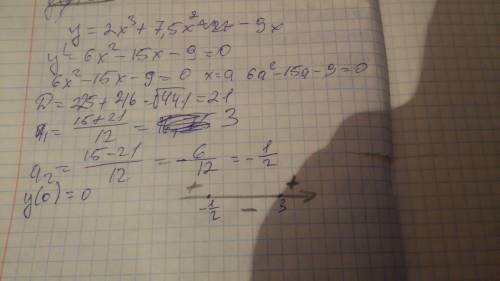 y = 2x³ + 7,5x² - 9x
y' = 6x² - 15x - 9 = 0
6x² - 15x - 9 = 0 x = a 6a² - 15a - 9 = 0
D = 225 + 216 = √441 = 21
a₁ = (15+21)/12 = 3
a₂ = (15-21)/12 = -6/12 = -1/2
y(0) = 0
+ - +
-1/2 3